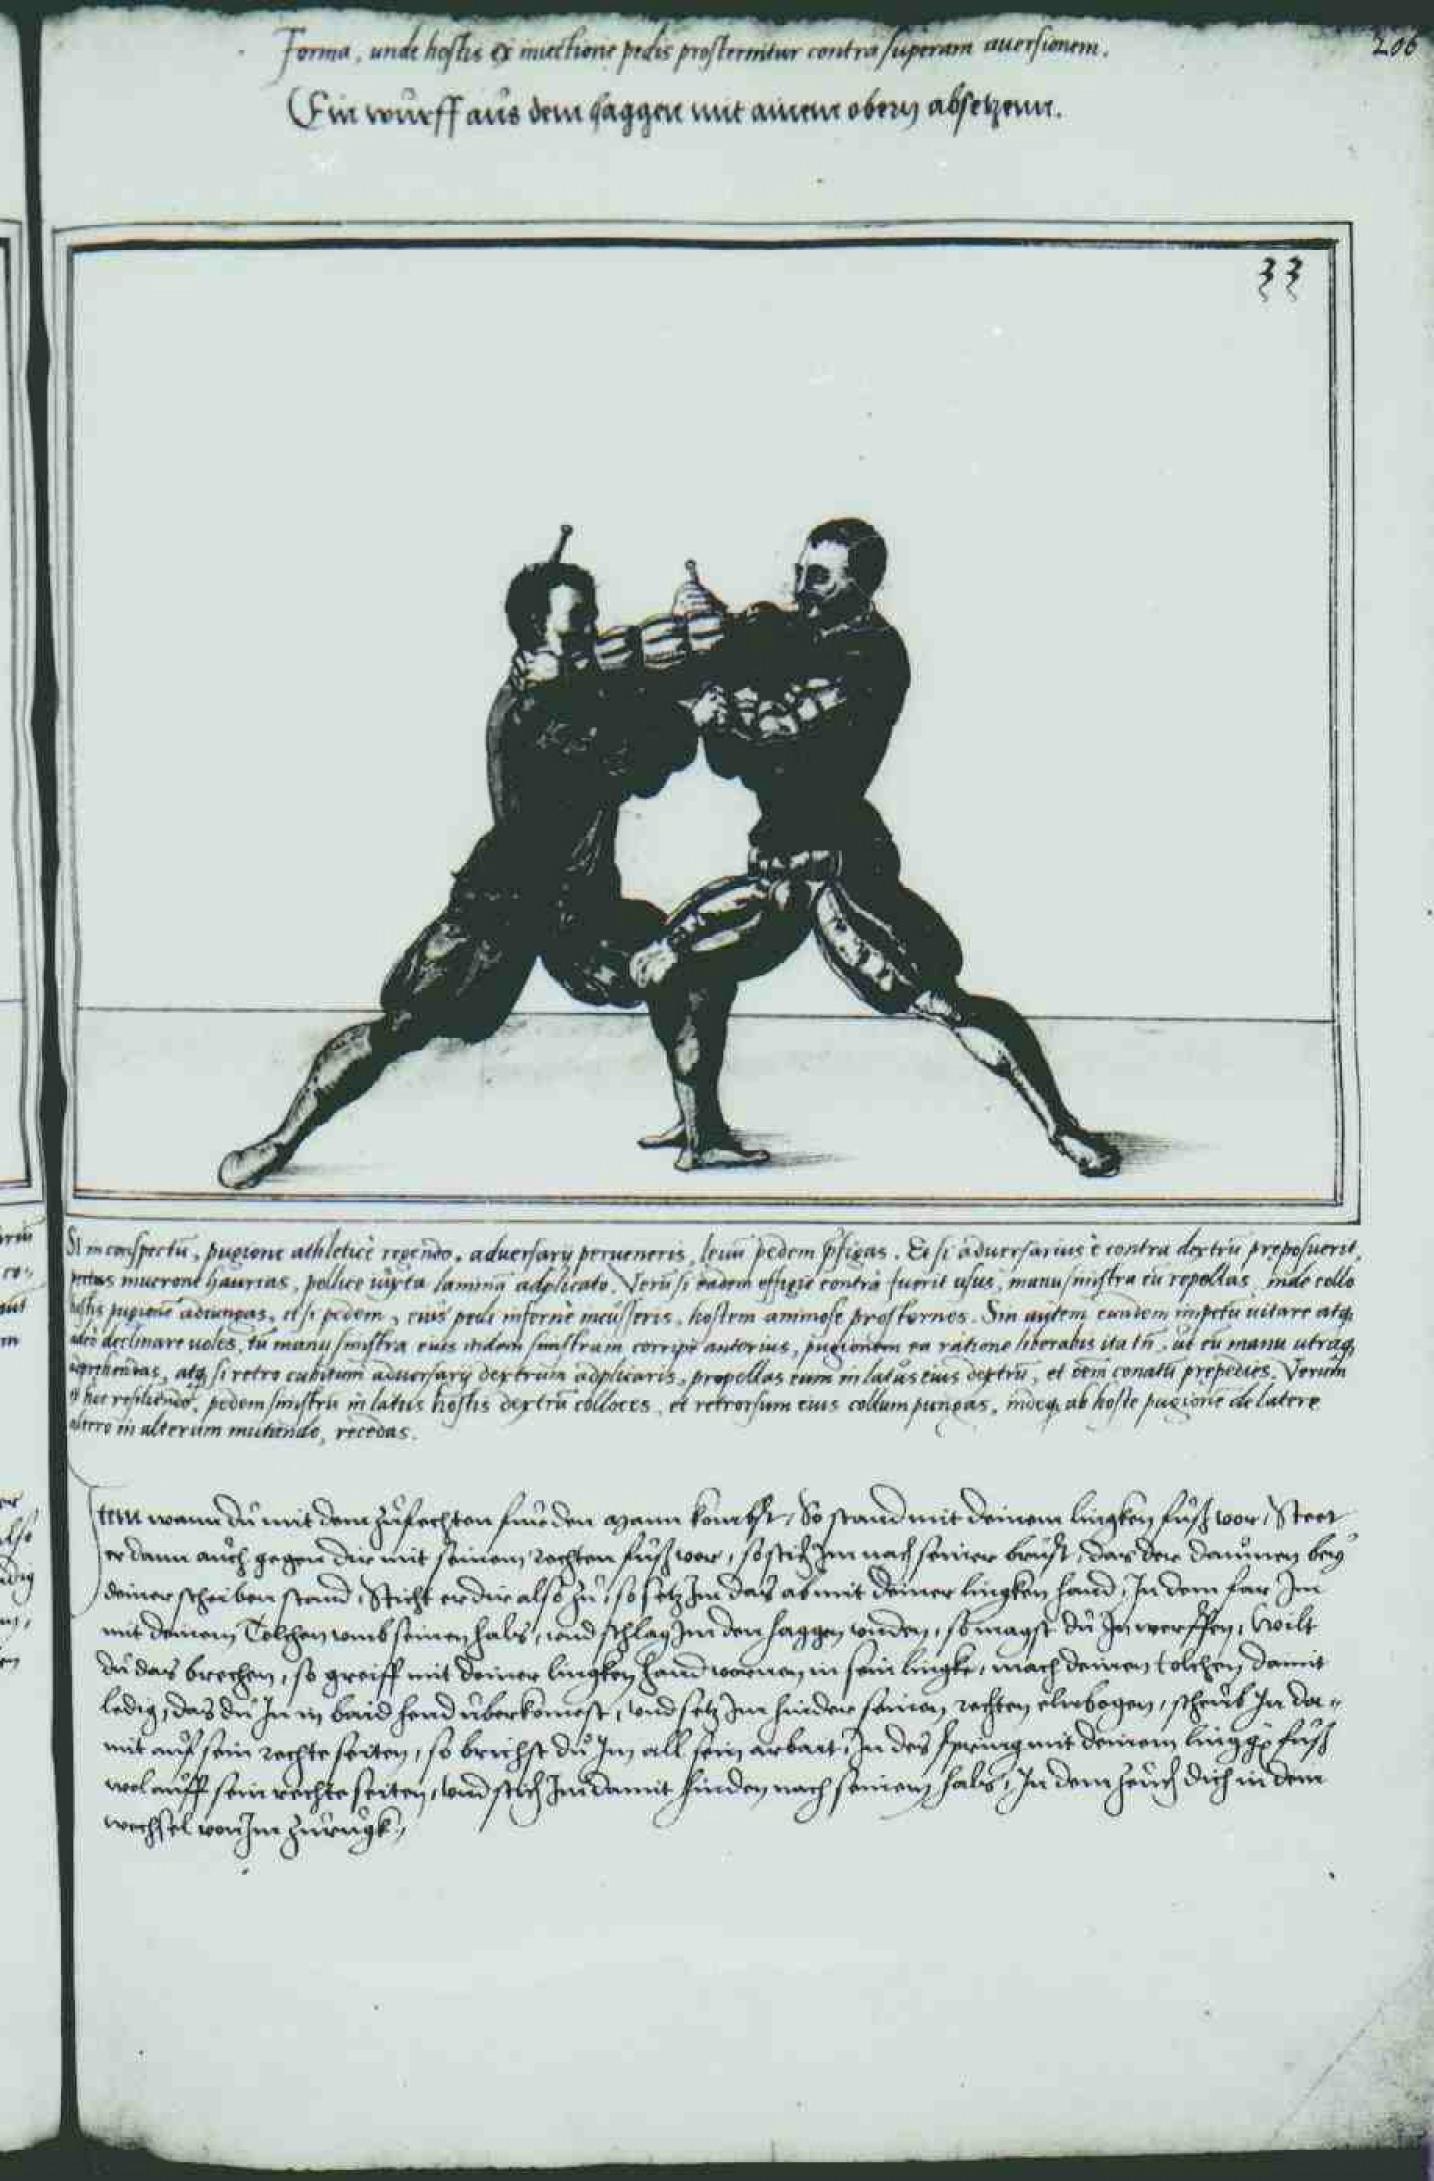 206
Forma, unde hostis ex iniectione pedis prosternitur contra superam aversionem.
Ein wurff aus dem haggen mit ainem obern absetzenn.
33
SI in conspectũ, pugione athleticè regendo, adversarÿ perveneris, levũ pedem p̃figas. Et si adversarius è contra dextrũ preposuerit,
mucrone haurias, pollice iuxta laminã adplicato. Verũ si eadem effigie contrà fuerit usus, manu sinistra eũ repellas, inde collo
hostis pugionẽ adiungas, et si pedem, eius pedi infernè incusseris, hostem animose prosternes. Sin autem eundem impetũ vitare atq̃
adeò declinare voles, tũ manu sinistra eius itidem sinistram corripe anterius, pugionem ea ratione liberabis ita tñ, ut eũ manu utraq̃
adprehendas, atq̃ si retro cubitum adversarÿ dextrum adplicaris, propellas eum in latus eius dextrũ, et oẽm conatũ prepedies. Verum
et hec resiliendo, pedem sinistrũ in latus hostis dextrũ colloces, et retrorsum eius collum pungas, indeq̃ ab hoste pugionẽ de latere
altero in alterum mutando, recedas.
Item wann du mit dem zufechten fur den mann kombst, So stand mit deinem lingken fuß vor, Steet
er dann auch gegen dir mit seinem rechten fuß vor, so stich Im nach seiner brust, das der daumen beÿ
deiner scheiben stand, Sticht er dir also zu, so setz Im das ab mit deiner lingken hand, In dem far Im
mit deinem Tolchen umb seinen hals, und schlag Im den haggen unden, so magst du In werffen, Wilt
du das brechen, so greiff mit deiner lingken hand vornen in sein lingke, mach deinen tolchen damit
ledig, das du In in baid hend uberkomest, und setz Im hinder seinen rechten elnbogen, scheub In da-
mit auf sein rechte seiten, so brichst du Im all sein arbait, In des spring mit deinem lingg͂ fuß
wol auff sein rechte seiten, und stich Im damit hinden nach seinem hals, In dem zeuch dich in dem
wechsel von Im zurugk,